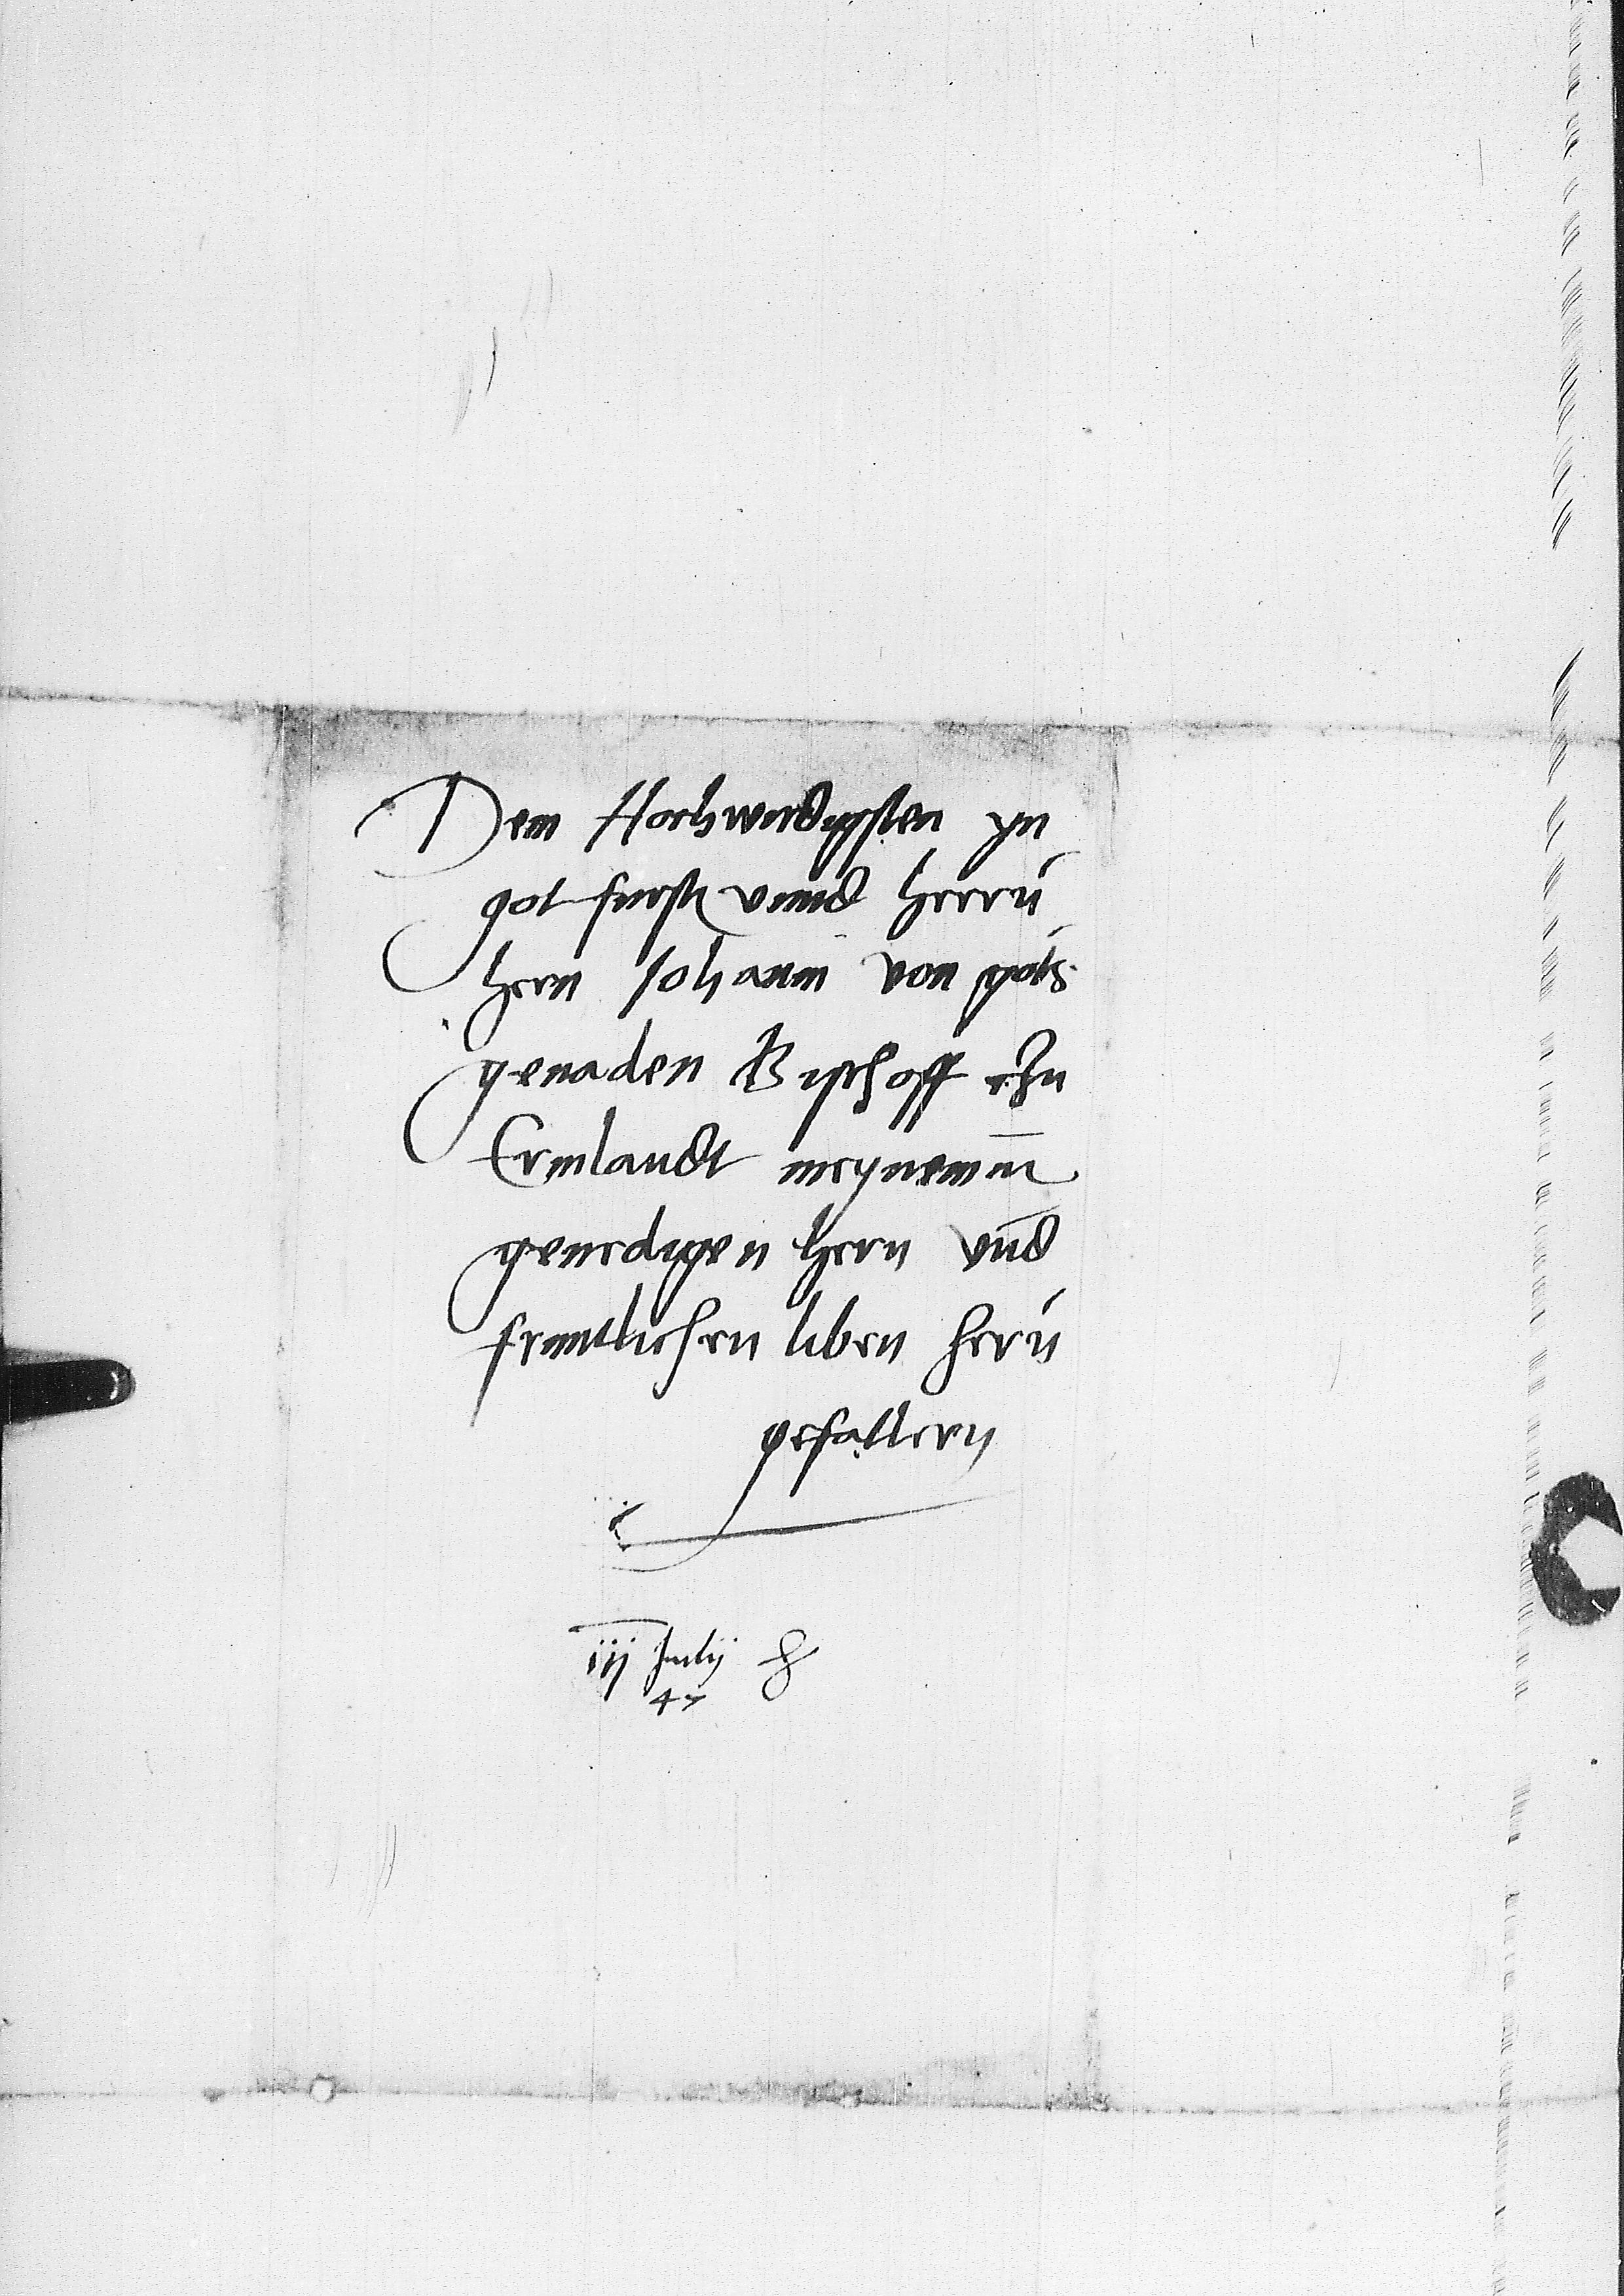 Dem Hochwirdigsten yn
got furst vnnd herrn
hern Johann von gots
genaden Bischoff zu
Ermlandt meynemm
genedigen hern vnd
fruntlichen liben hern
gefattern
iij Julij
47